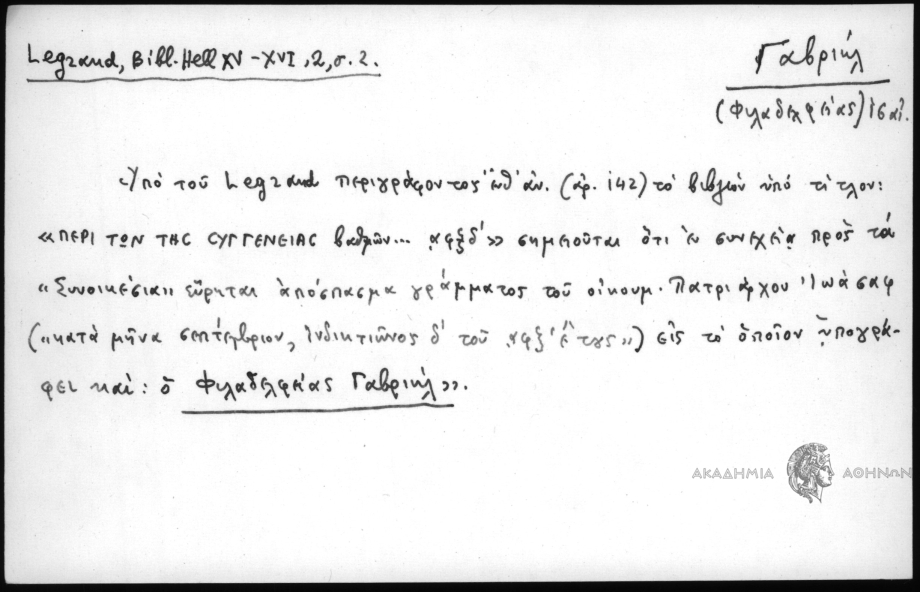 Legrand, Bibl. Hell XV-XVI, 2, σ. 2.
Γαβριήλ
(Φιλαδελφείας)
Ὑπό τοῦ Legrand περιγράφοντος (ἀρ. 142) τό βιβλίον ὑπό τίτλον:
«ΠΕΡΙ ΤΩΝ ΤΗC CΥΓΓΕΝΕΙΑC βαθμῶν... ͵αφξδ´» σημειοῦται ὅτι ἐν συνεχείᾳ πρός τά
«Συνοικέσια» εὕρηται ἀπόσπασμα γράμματος τοῦ οἰκουμ. Πατριάρχου Ἰωάσαφ
(«κατὰ μῆνα σεπτέμβριον, ἰνδικτιῶνος δ´ τοῦ ͵αφξ´ ἔτους») εἰς τό ὁποῖον ὑπογρά-
φει καὶ: ὁ Φιλαδελφείας Γαβριήλ».
ΑΚΑΔΗΜΙΑ ΑΘΗΝΩΝ